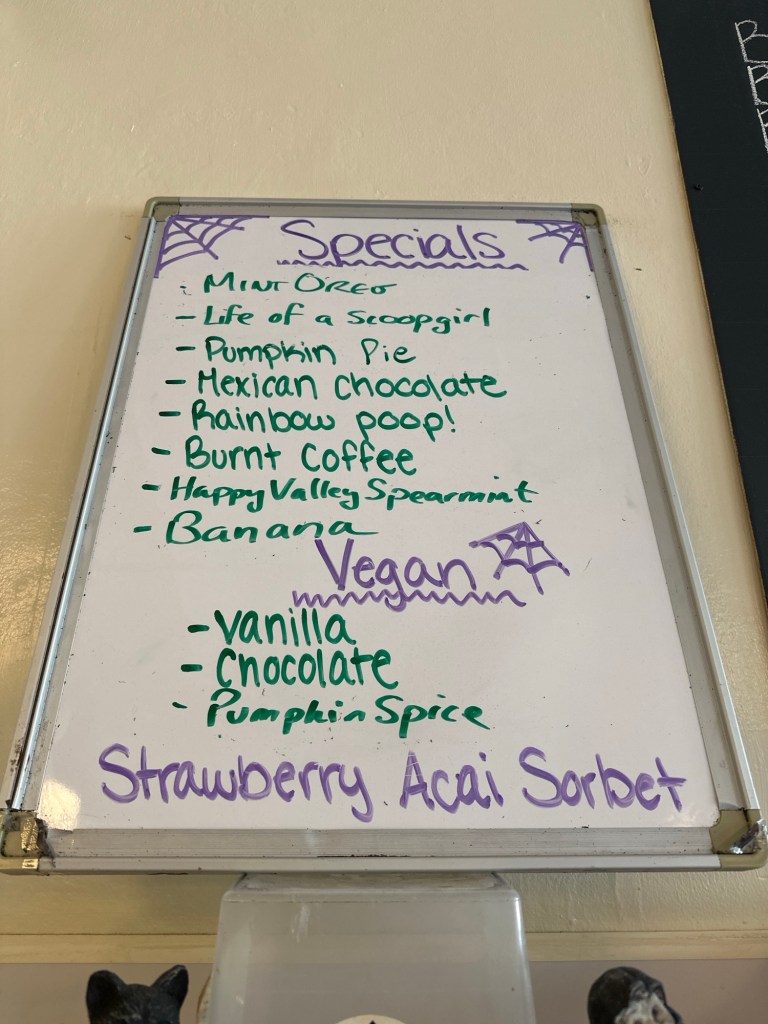 Specials
- Mint Oreo
- Life of a scoopgirl
- Pumpkin Pie
- Mexican chocolate
- Rainbow poop!
- Burnt Coffee
- Happy Valley Spearmint
- Banana
Vegan
- Vanilla
- Chocolate
- Pumpkin Spice
Strawberry Acai Sorbet